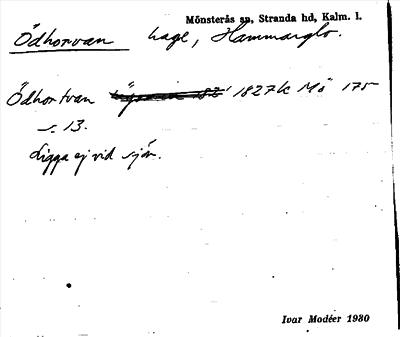 Mönsterås sn, Stranda hd, Kalm. l.
Ödhorvan hage, Hammarglo.
Ödhortvan 1827 k Mö 175
s. 13.
Ligga ej vid sjön.
Ivar Modéer 1930